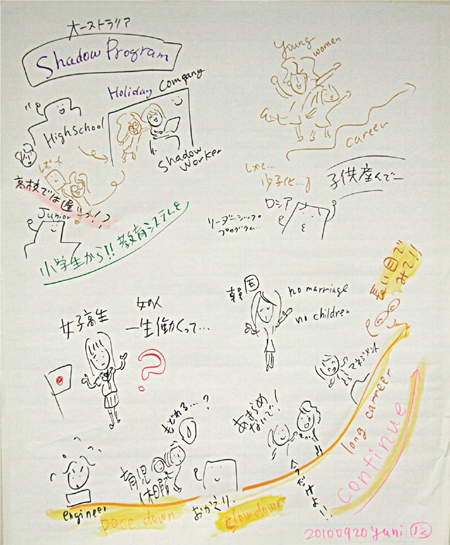 オーストラリア
Shadow Program
Holiday
Company
High School
Shadow
Worker
高校では遅い!?
Junior
小学生から!! 教育システムを
Young
women
career
しかし…
少子化…
子供産んでー
ロシア
リーダーシップ
プログラム…
女子高生
女の人
一生働くって…
?
韓国
no marriage
no children
長い目で
みて!!
マネジメント
もどれる…?
育児
休暇
おかえり
あきらめ
ないで!
long carreer
continue
engineer
pace down
slow down
20100920 yuni 13